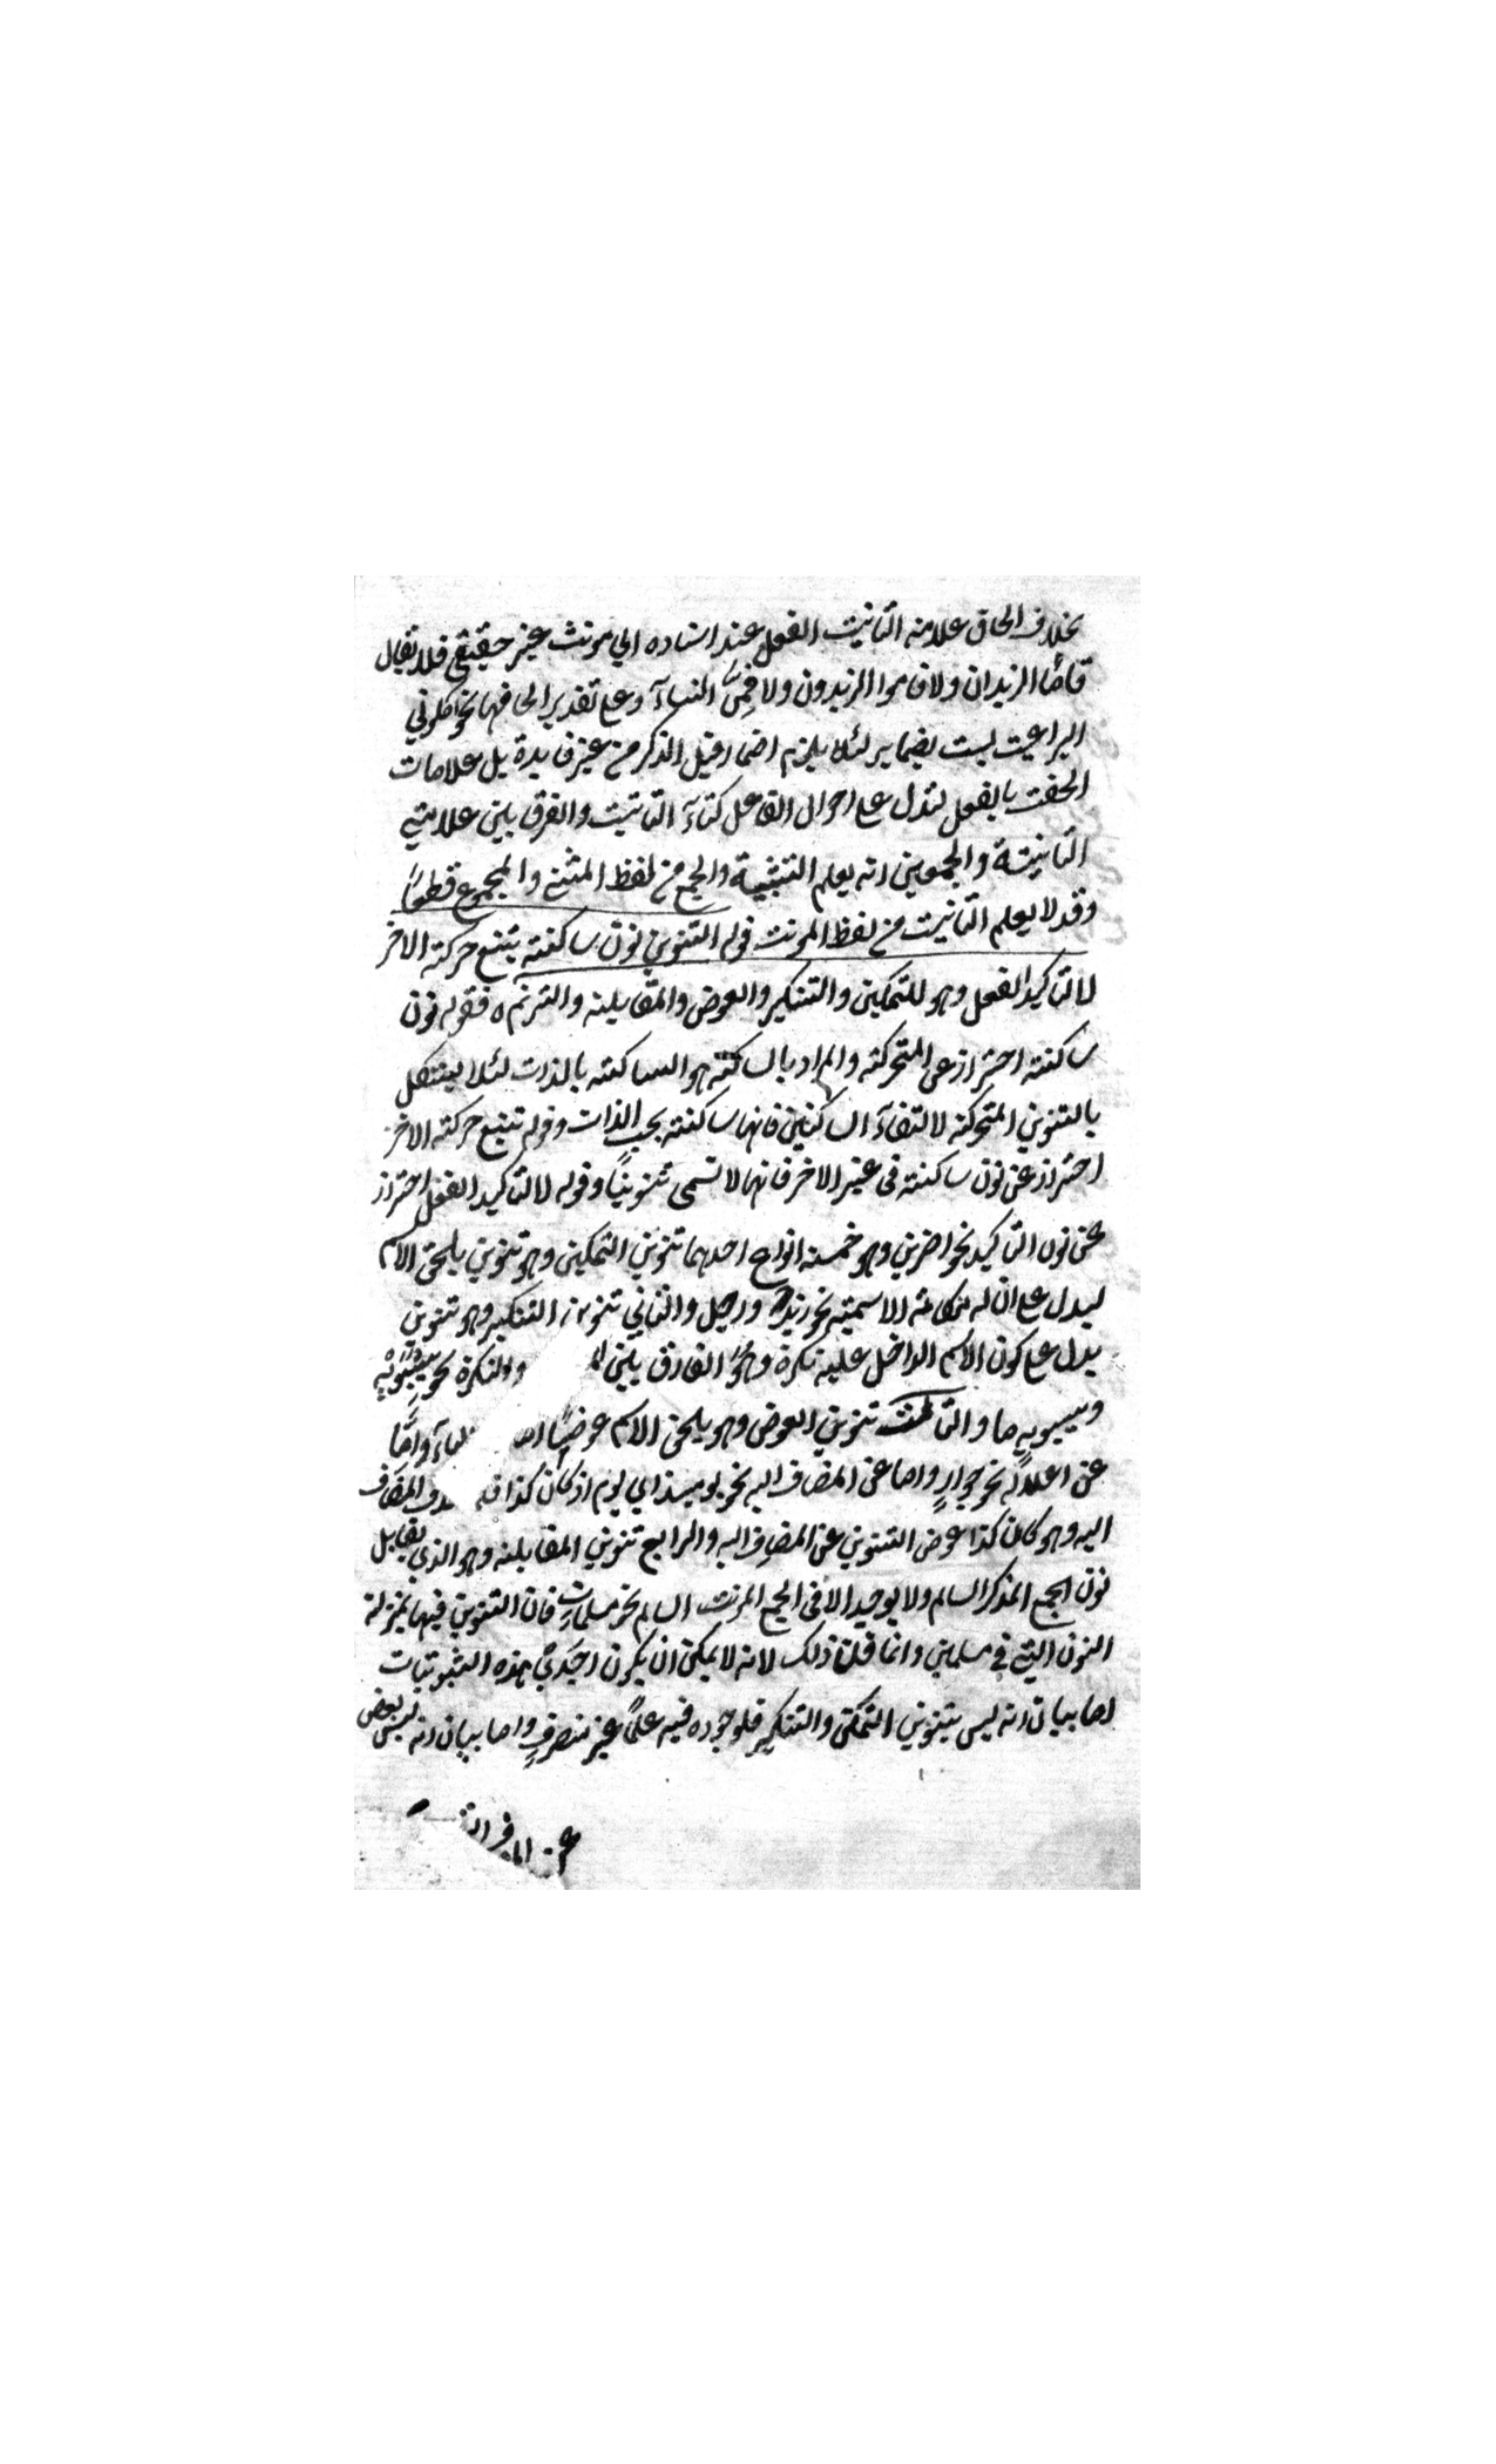 بخلاف الحاق علامة التانيث الفعل عند اسناده الي مونث غير حقيقي فلا تقال
قاما الزيدان ولا قاموا الزيدون ولا قمن النسآء وعلى تقدير الحاقها نحو اكلوني
البراغيث ليست بضماير لئلا يلزم اضمار قبل الذكر من غير فايدة بل علامات
الحقت بالفعل لتدل على احوال الفاعل كتآء التانيث والفرق بين علامتي
التانيثة والجمعين انه يعلم التثنية والجمع من لفظ المثنى والمجموع قطعًا
وقد لا يعلم التانيث من لفظ المونث قوله التنوين نون ساكنة يتبع حركة الاخر
لا لتاكيد الفعل وهو للتمكين والتنكير والعوض والمقابلة والترنم ه فقوله نون
ساكنة احتراز عن المتحركة والمراد بالساكنة هو الساكنة بالذات لئلا يشكل
بالتنوين المتحركة لالتقآء الساكنين فانها ساكنة بحسب الذات وقوله تتبع حركة الاخر
احتراز عن نون ساكنة في غير الاخر فانها لا تسمى تنوينًا وقوله لا لتاكيد الفعل احتراز
عن نون التاكيد نحو اضربن وهو خمسة انواع احدهما تنوين التمكين وهو تنوين يلحق الاسم
ليدل على ان له مكانة الاسمية نحو زيد ورجل والثاني تنوين التنكير وهو تنوين
يدل على كون الاسم الداخل عليه نكرة وهو الفارق بين والنكرة نحو سيبويه
وسيبويه ما والثالث تنوين العوض وهو يلحق الاسم عوضًا وامّا
عن اعلاله نحو جوارٍ واما عن المضاف اليه نحو يوميذ اي يوم اذ كان كذا المضاف
اليه وهو كان كذا عوض التنوين عن المضاف اليه والرابع تنوين المقابلة وهو الذي يقابل
نون الجمع المذكر السالم ولا يوجد الا في الجمع المونث السالم نحو مسلماتٍ فان التنوين فيها بمنزلة
النون التي في مسلمين وانما قلنا ذلك لانه لا يمكن ان يكون احدي هذه الثبوتيات
اما بيان انه ليس بتنوين التمكن والتنكير فلوجوده فيه علمًا غير منصرفٍ واما بيان انه ليس بعوض